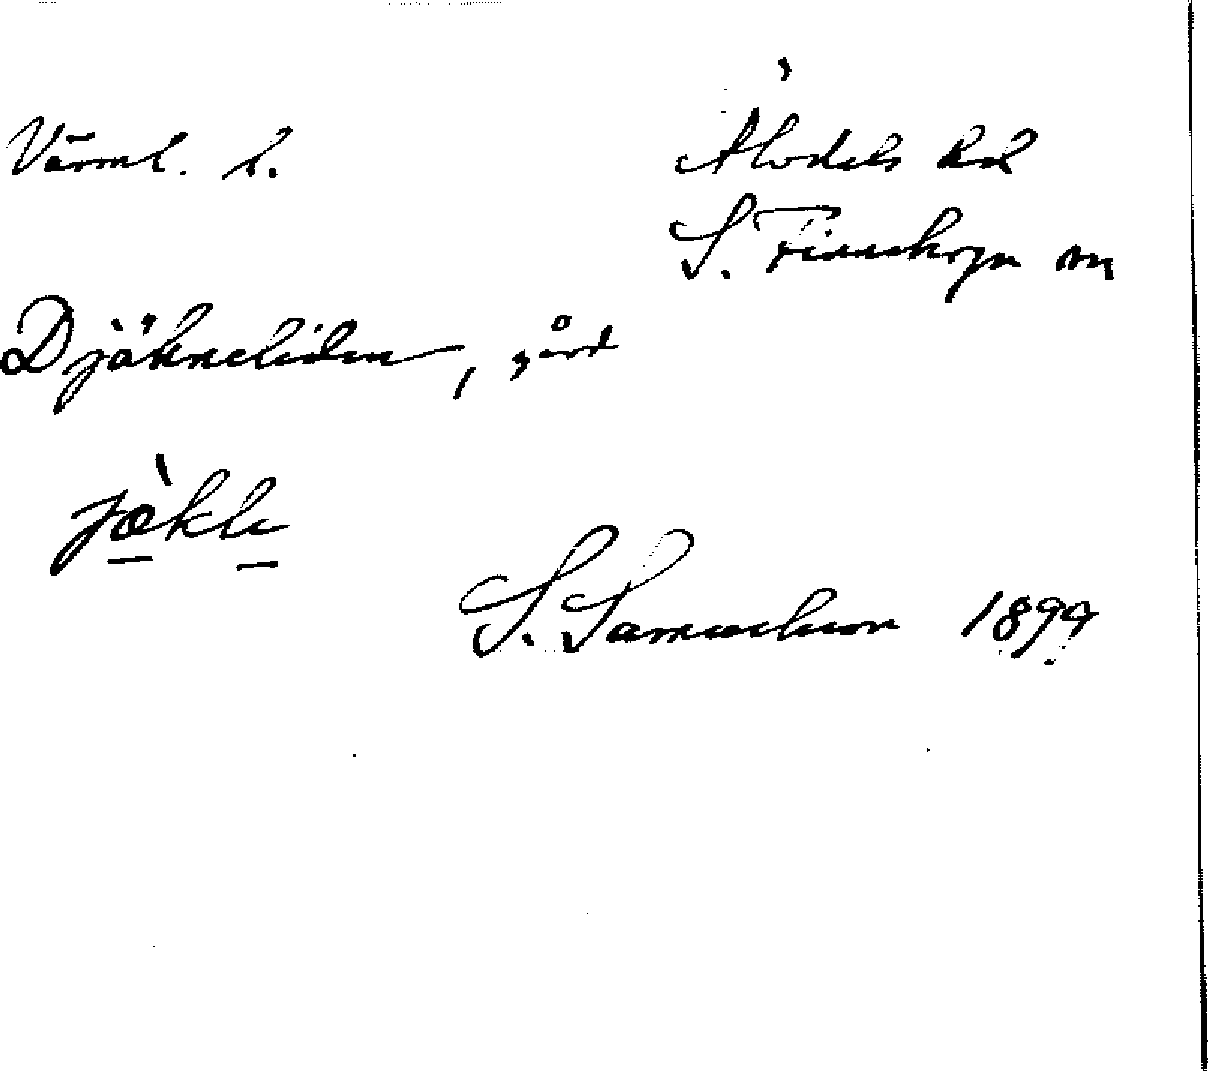 Värml. l.
Älvdals hd
S. Finnskoga sn
Djäkneliden, gård
jäkle
S. Samuelsson 1899